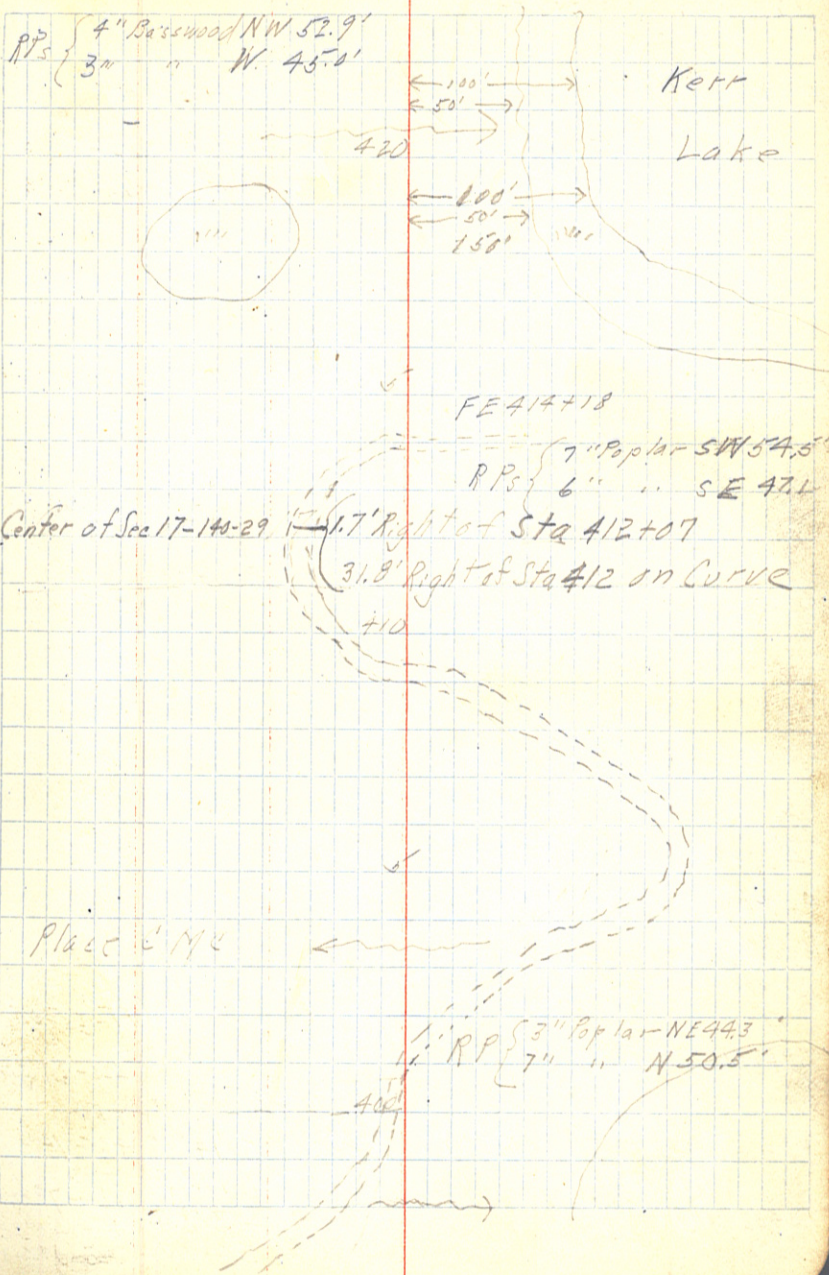 RPs { 4" Basswood NW 52.9'
3" " W. 45.0'
Kerr
Lake
100'
50'
420
100'
50'
150'
FE 414+18
RPs { 7" Poplar SW 54.5'
6" " SE 47.1
Center of Sec 17-140-29
1.7' Right of Sta 412+07
31.8' Right of Sta 412 on Curve
+10
Place
RP { 3" Poplar NE 44.3'
7" " N 50.5'
400